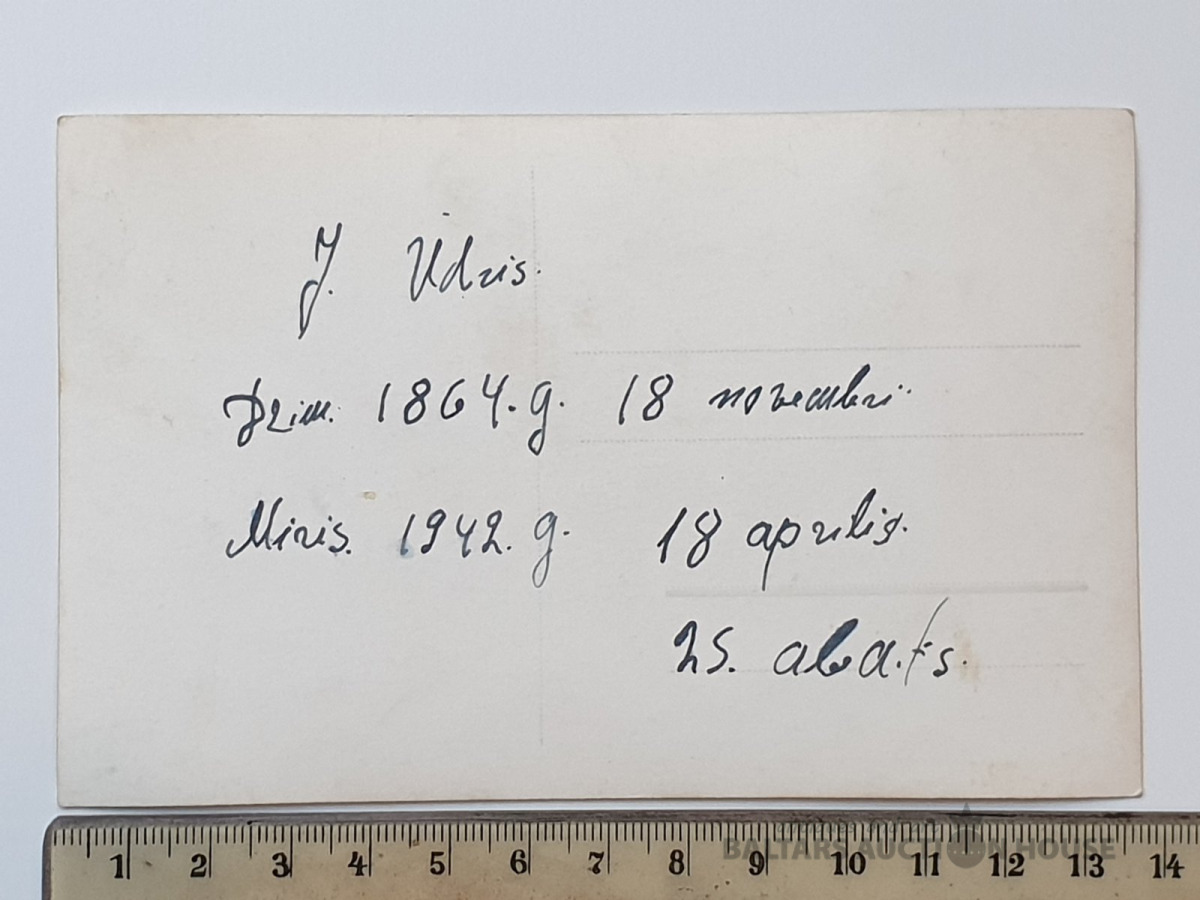 J. Udris.
Dzim. 1864. g. 18 novembrī.
Miris. 1942. g. 18 aprilis.
25.
1 2 3 4 5 6 7 8 9 10 11 12 13 14
BALTARS AUCTION HOUSE